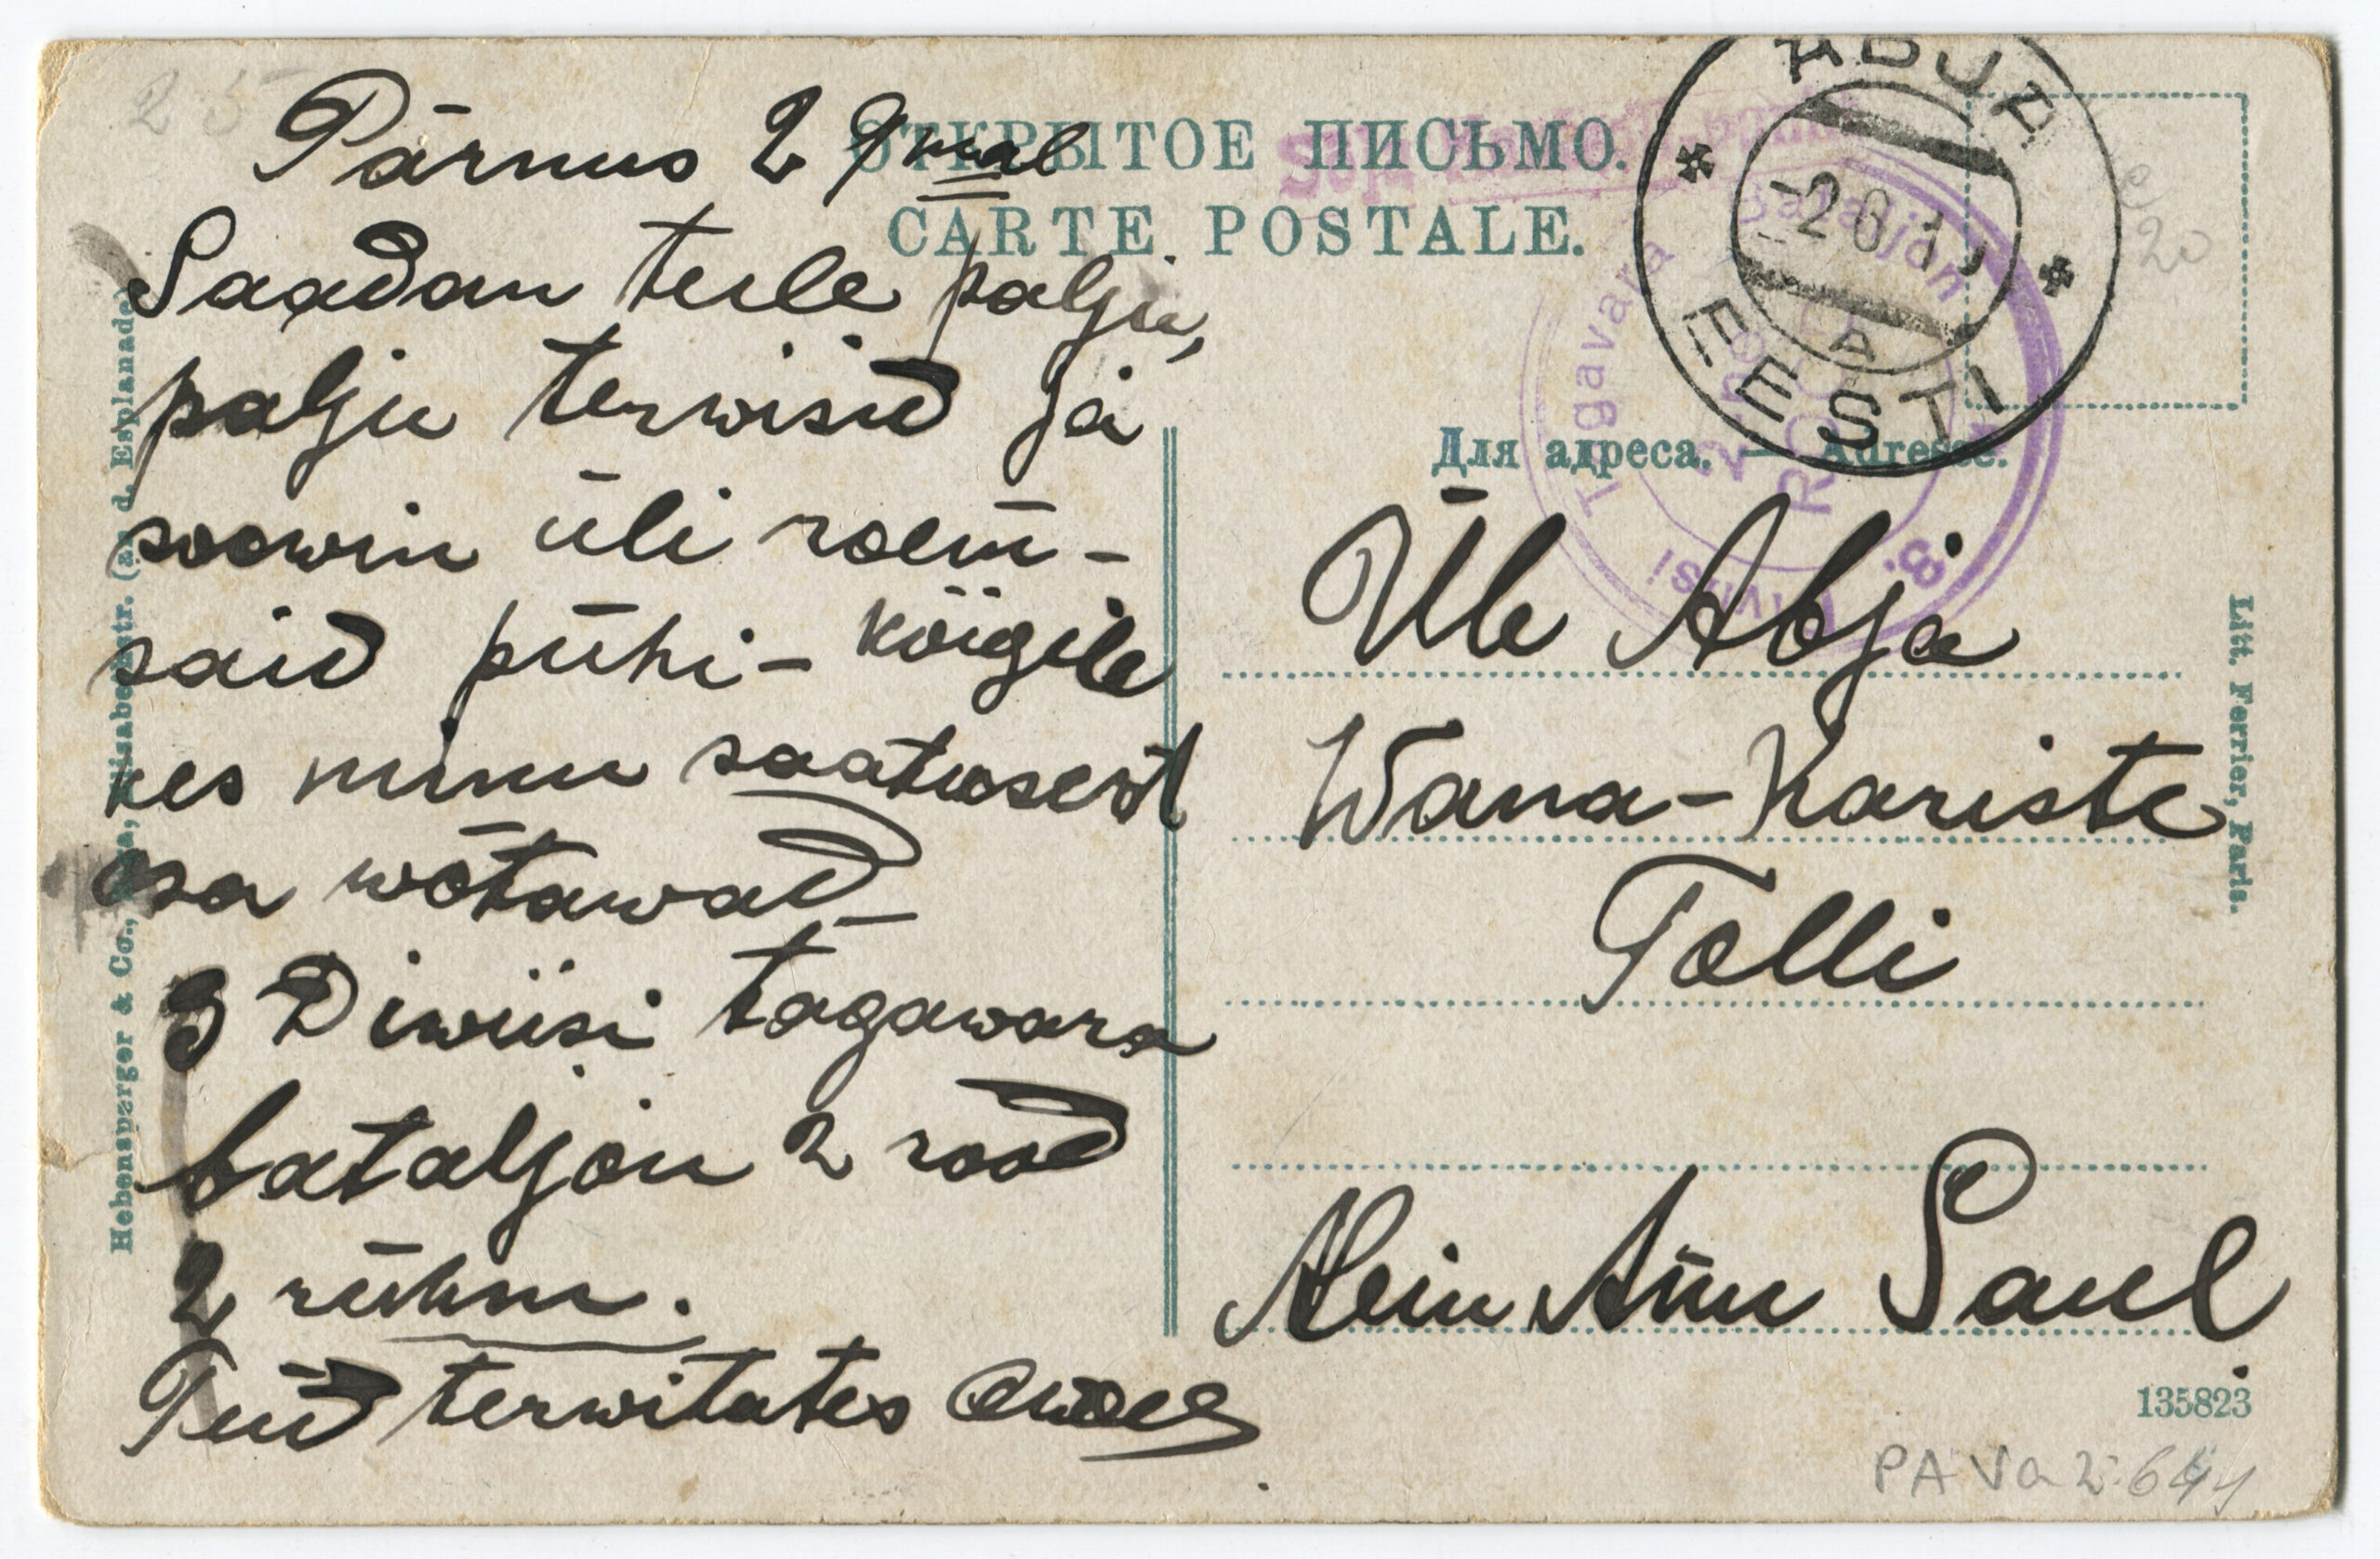 Pärnus 29 mal
Saadan teile palju,
palju terwisid ja
soowin üli roem-
said pühi- kõigile
kes minu saatusest
osa wõtawad,-
3 Diwiisi tagawara
bataljon 2 rood
2 rühm.
Teid terwitates
ОТКРЫТОЕ ПИСЬМО.
CARTE POSTALE.
ABJA
EESTI
A
Tagavara
Bataljon
Для адреса. — Adresse.
Üle Abja
Wana-Kariste
Tolli
Ann Saul
Litt. Ferrier, Paris.
135823
PA Va 2